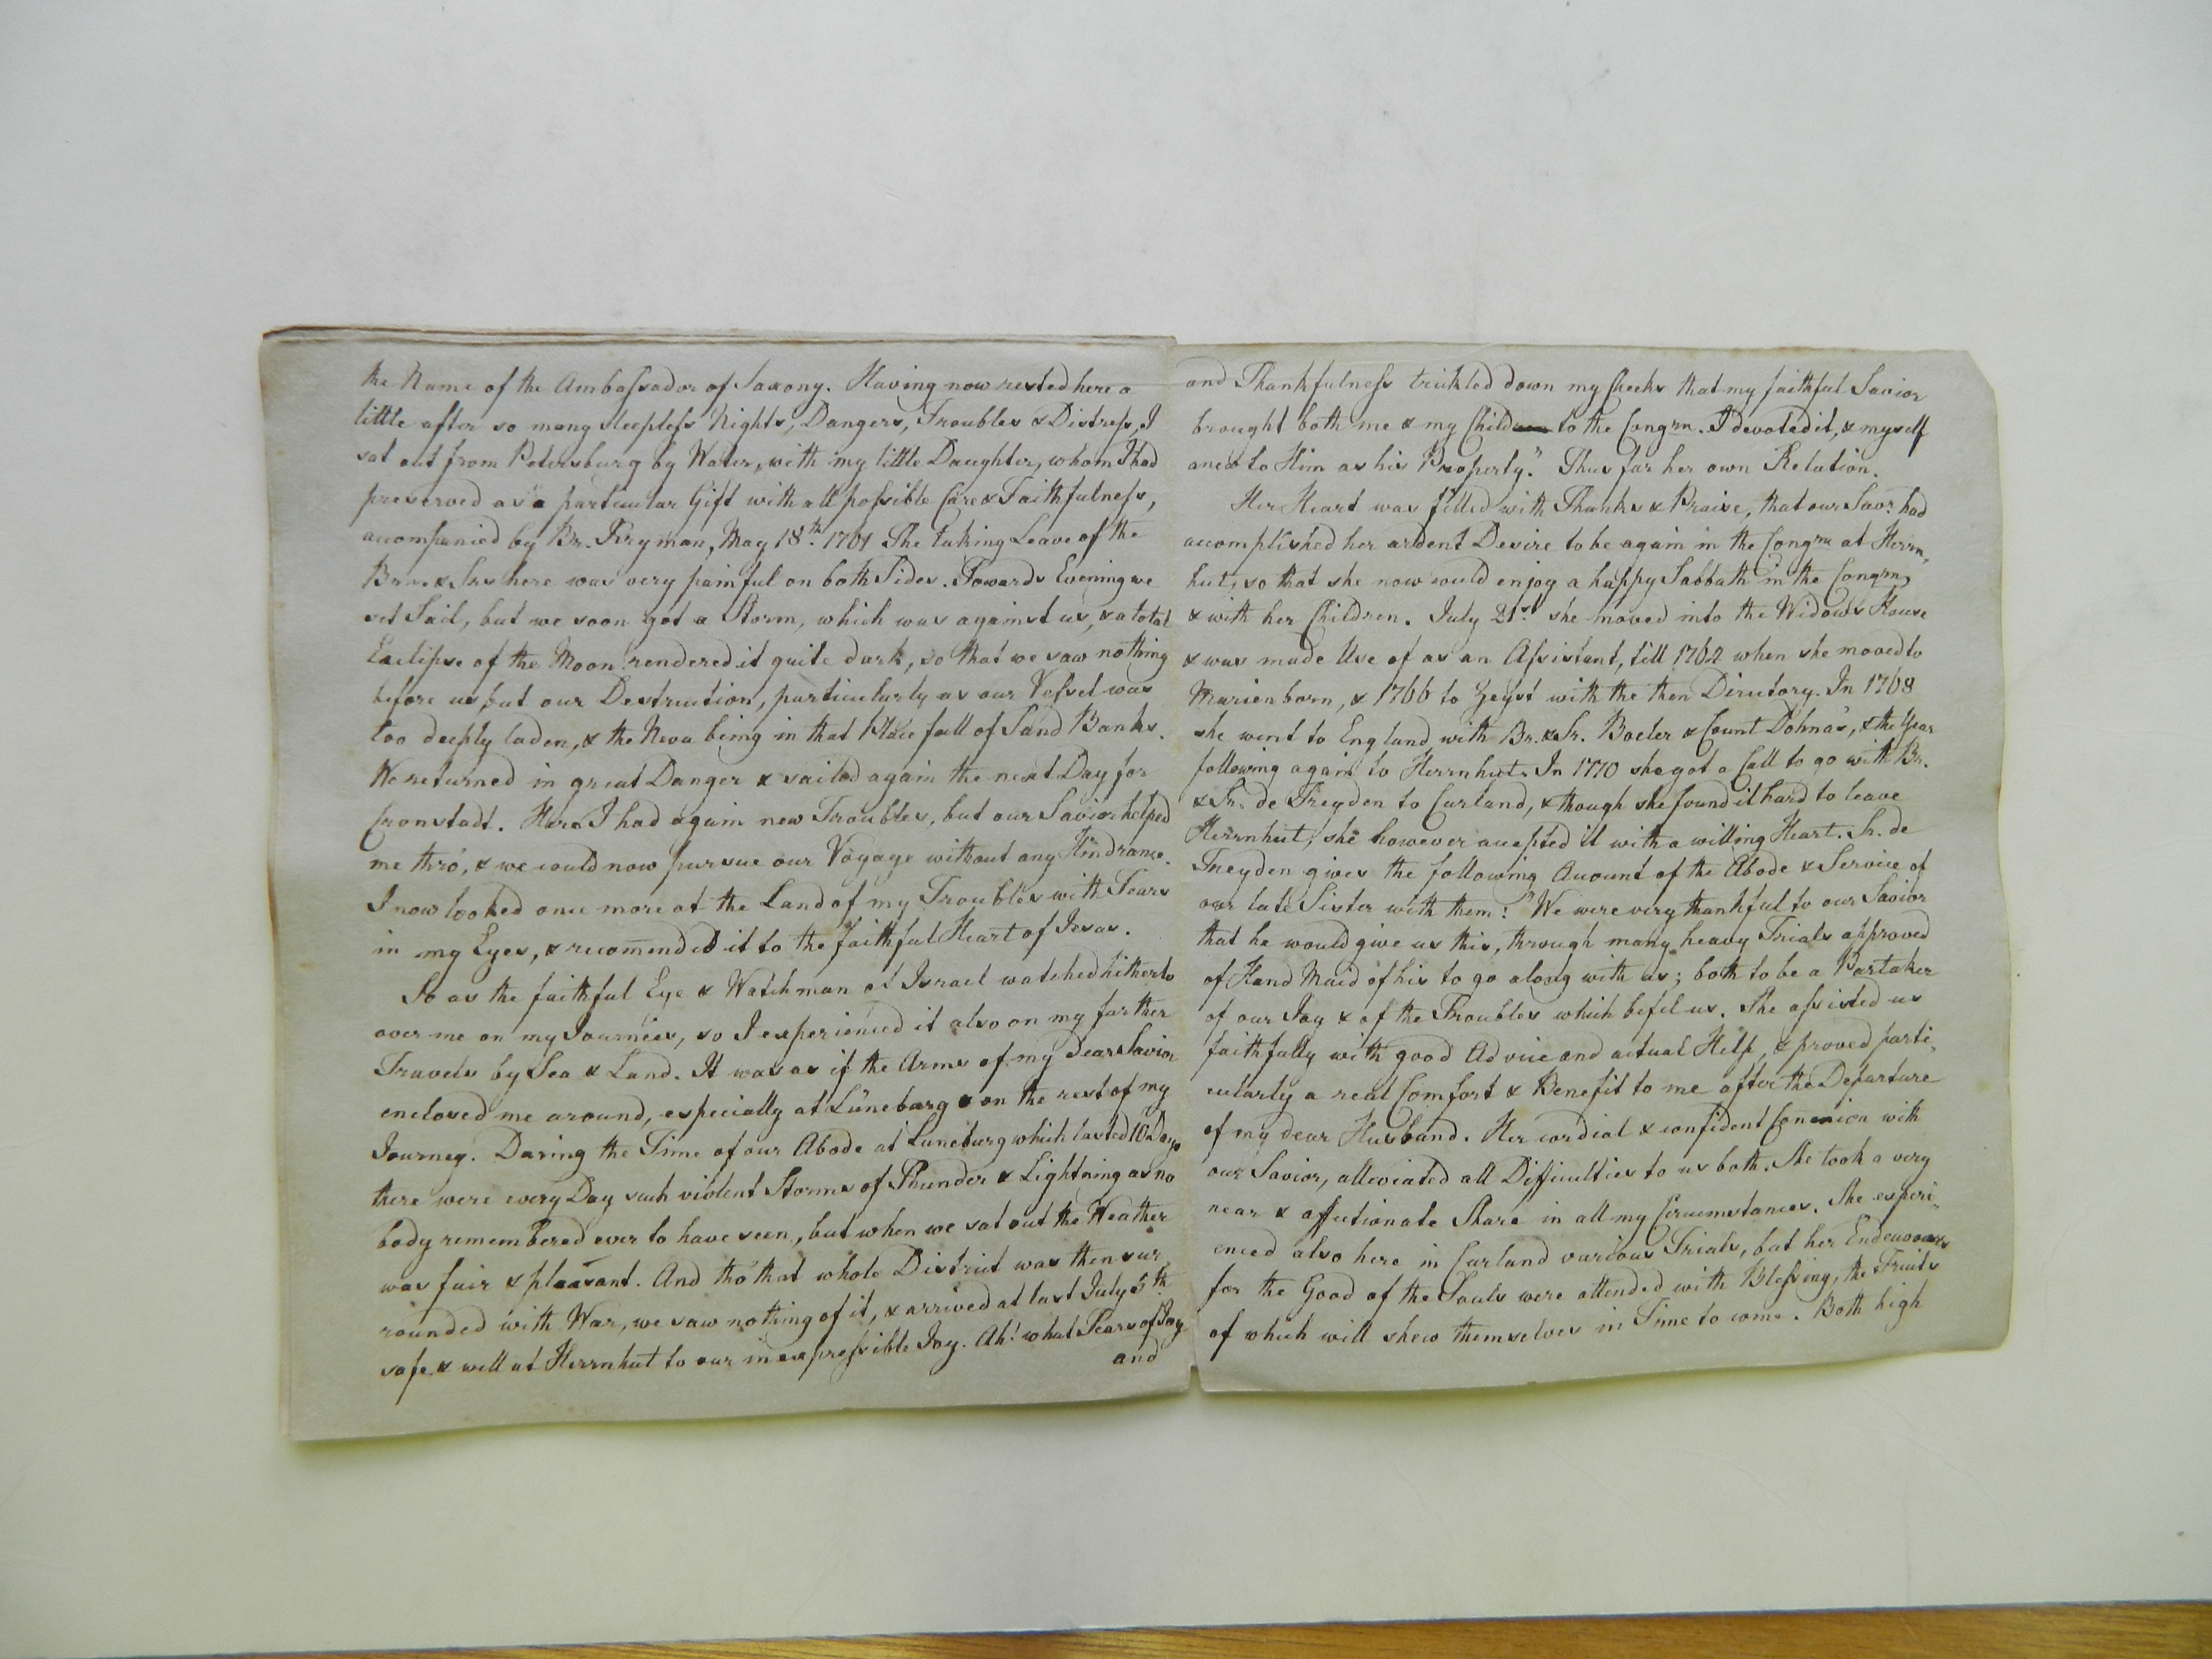 the Name of the Ambassador of Saxony. Having now rested here a
little after so many sleepless Nights, Dangers, Troubles & Distress, I
sat out from Petersburg by Water, with my little Daughter, whom I had
preserved as a particular Gift with all possible Care & Faithfulness,
accompanied by Br. Fryman, May 18th. 1761 The taking Leave of the
Brn & Srs here was very painful on both Sides. Towards Evening we
set Sail, but we soon got a Storm, which was against us, & a total
Eaclipse of the Moon rendered it quite dark, so that we saw nothing
before us but our Destruction, particularly as our Vessel was
too deeply laden, & the Neva being in that Place full of Sand Banks.
We returned in great Danger & sailed again the next Day for
Cronstadt. Here I had again new Troubles, but our Savior helped
me thro', & we could now pursue our Voyage without any Hindrance.
I now looked once more at the Land of my Troubles with Tears
in my Eyes, & recom̄ended it to the faithful Heart of Jesus.
So as the faithful Eye & Watchman of Israel watched hitherto
over me on my Journeies, so I experienced it also on my farther
Travels by Sea & Land. It was as if the Arms of my dear Savior
enclosed me around, especially at Lüneburg & on the rest of my
Journey. During the Time of our Abode at Luneburg which lasted 10 Days
there were every Day such violent Storms of Thunder & Lightning as no
body remembered ever to have seen, but when we sat out the Weather
was fair & pleasant. And tho' that whole District was then sur,
rounded with War, we saw nothing of it, & arrived at last July 5th.
safe & well at Herrnhut to our inexpressible Joy. Ah! what Tears of Joy
and
and Thankfulness trickled down my Cheeks that my faithful Savior
brought both me & my Child to the Congrn. I devoted it, & myself
anew to Him as his Property." Thus far her own Relation.
Her Heart was filled with Thanks & Praise, that our Savr. had
accomplished her ardent Desire to be again in the Congrn at Herrn,
hut, so that she now could enjoy a happy Sabbath in the Congrn,
& with her Children. July 21st she moved into the Widows House
& was made Use of as an Assistant, till 1762 when she moved to
Marienborn, & 1766 to Zeyst with the then Directory. In 1768
she went to England with Br. & Sr. Boeler & Count Dohna's, & the Year
following again to Herrnhut. In 1770 she got a Call to go with Br.
& Sr. de Freyden to Curland, & though she found it hard to leave
Herrnhut, she however accepted it with a willing Heart. Sr. de
Freyden gives the following Account of the Abode & Service of
our late Sister with them: "We were very thankful to our Savior
that he would give us this, through many heavy Trials approved
of Hand Maid of his to go along with us; both to be a Partaker
of our Joy & of the Troubles which befel us. She assisted us
faithfully with good Advice and actual Help, & proved parti,
cularly a real Comfort & Benefit to me after the Departure
of my dear Husband. Her cordial & confident Conexion with
our Savior, alleviated all Difficulties to us both. She took a very
near & affectionate Share in all my Circumstances. She experi,
enced also here in Curland various Trials, but her Endeavours
for the Good of the Souls were attended with Blessing, the Fruits
of which will shew themselves in Time to come. Both high